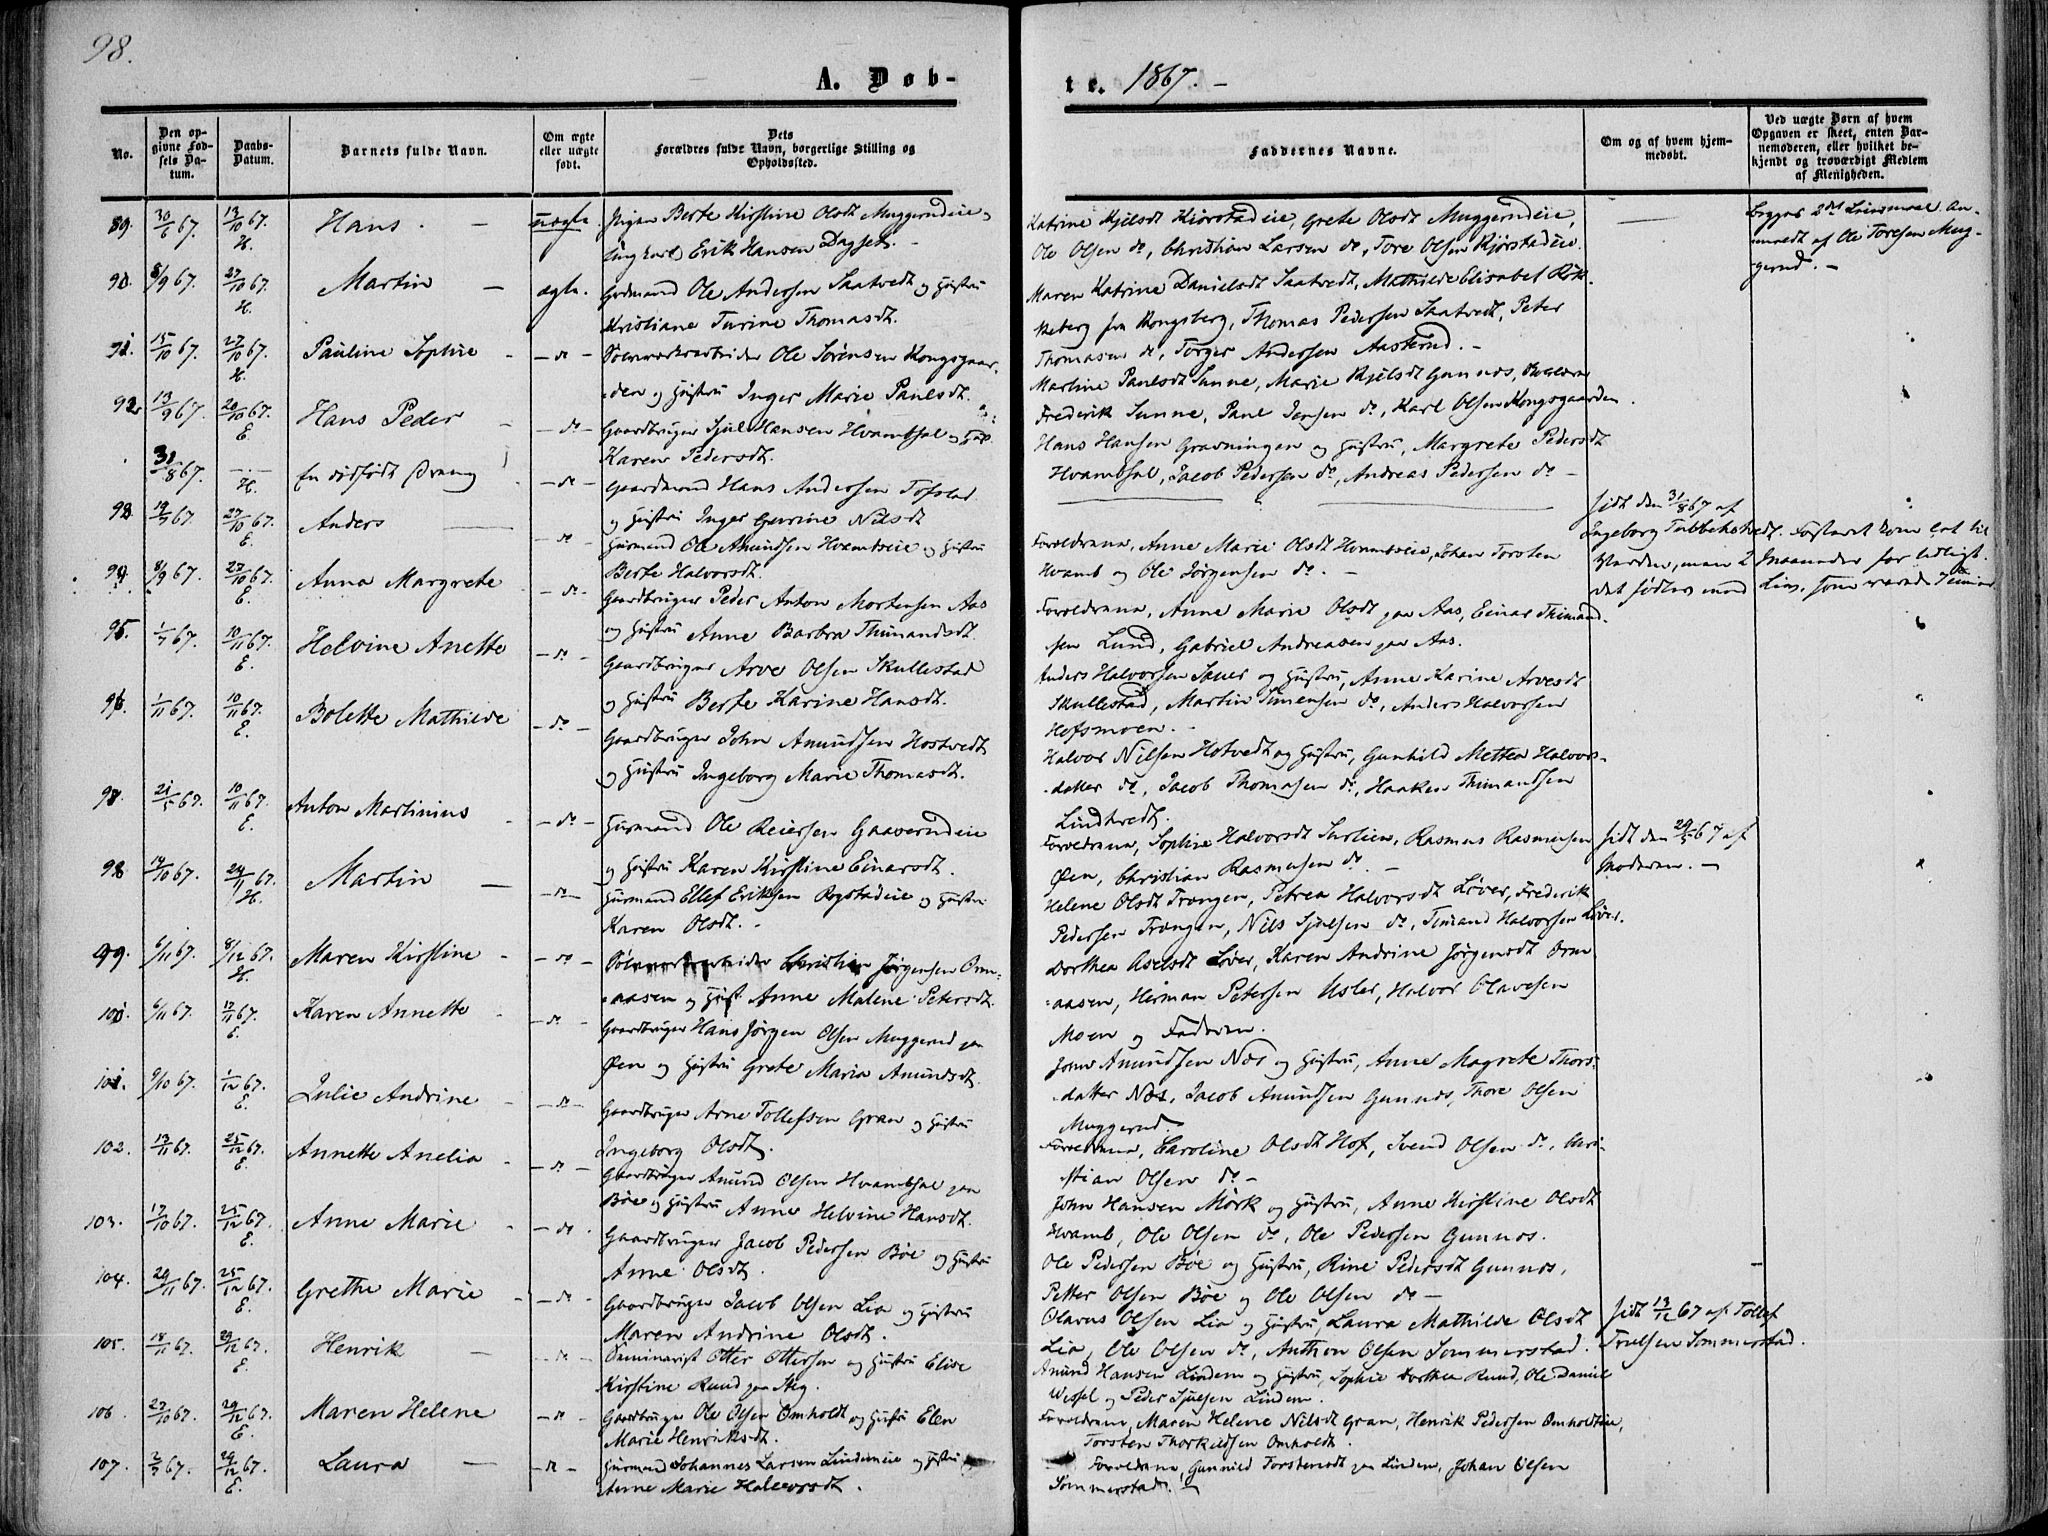 98.
A. Døb-
te. 1867. -
No.
Den opgivne Fødsels Datum.
Daabs-Datum.
Barnets fulde Navn.
Om ægte eller uægte født.
Dets Forældres fulde Navn, borgerlige Stilling og Opholdssted.
Faddernes Navne.
Om og af hvem hjemmedøbt.
Ved uægte Børn af hvem Opgaven er skeet, enten Barnemoderen, eller hvilket bekjendt og troværdigt Medlem af Menigheden.
89. 30/6 67. 13/10 67. H. Hans. - uægte. Pigen Berte Kirstine Olsdt Muggerudeie,
Ungkarl Erik Hansen Dagsjet. -
Katrine Kjelsdt Kiørstadeie, Grete Olsdt Muggerudeie,
Ole Olsen do, Christian Larsen do, Tore Olsen Kjørstadeie.
Begges 2det Leiermaal. An-
meldt af Ole Toresen Mug-
gerud. -
90. 8/9 67. 27/10 67. H. Martin - ægte. Grdmand Ole Andersen Skatvedt og Hustru
Kristiane Turine Thomasdt.
Maren Katrine Danielsdt Skatvedt, Mathilde Elisabet
fra Kongsberg, Thomas Pedersen Skatvedt, Peter
Thomasen do, Torger Andersen Aasterud. -
91. 15/10 67. 27/10 67. H. Pauline Sophie - - do - Sølvverksarbeider Ole Sørensen Kongsgaar-
den og Hustru Inger Marie Paulsdt.
Martine Paulsdt Sunne, Marie Kjelsdt Gunnes,
Frederik Sunne, Paul Jensen do, Karl Olsen Kongsgaarden.
92. 13/9 67. 20/10 67. E. Hans Peder - - do - Gaardbruger Sjul Hansen Hvambsal og
Karen Pedersdt.
Hans Hansen Gravningen og Hustru, Margrete Pedersdt
Hvambsal, Jacob Pedersen do, Andreas Pedersen do -
31/8 67. H. En dødfødt Dreng - do - Gaardmand Hans Andersen Tofstad
og Hustru Inger Gurine Nilsdt
Hjdt den 31/8 67 af
Ingeborg Tubbehstvedt. Fosteret kom lat til
Verden, men 2 Maaneder for tidligt.
93. 19/7 67. 27/10 67. E. Anders - do - Huusmand Ole Amundsen Hvambseie og Hustru
Berte Halvorsdt.
Forældrene, Anne Marie Olsdt Hvambseie, Johan Torsten
Hvamb og Ole Jørgensen do. -
94. 8/9 67. 27/10 67. E. Anna Margrete - do - Gaardbruger Peder Anton Mortensen Aas
og Hustru Anne Barbra Thimandsdt.
Forældrene, Anne Marie Olsdt paa Aas, Einar Thimand-
sen Lund, Gabriel Andreasen paa Aas.
95. 1/7 67. 10/11 67. E. Helvine Anette - do - Gaardbruger Arve Olsen Skullestad
og Hustru Berte Karine Hansdt.
Anders Halvorsen Sauer og Hustru, Anne Karine Arvesdt
Skullestad, Martin Simensen do, Anders Halvorsen
Hofsmoen. -
96. 1/11 67. 10/11 67. E. Bolette Mathilde - do - Gaardbruger John Amundsen Hostvedt
og Hustru Ingeborg Marie Thomasdt.
Halvor Nilsen Hotvedt og Hustru, Gunhild Mettea Halvors-
datter do, Jacob Thomasen do, Haaken Thimandsen
Lindtvedt.
97. 21/5 67. 10/11 67. E. Anton Martinius - - do - Huusmand Ole Reiersen Gaaserudeie
og Hustru Karen Kirstine Einarsdt.
Forældrene, Sophie Halvorsdt Surlien, Rasmus Rasmussen
Øen, Christian Rasmusen do. -
Hjdt den 29/5 67 af
Moderen. -
98. 14/10 67. 24/11 67. H. Martin - - do - Huusmand Ellef Eriksen Rogstadeie og Hustru
Karen Olsdt. -
Helene Olsdt Trængen, Petrea Halvorsdt Løver, Frederik
Pedersen Trængen, Nils Sjulsen do, Timand Halvorsen Løver.
99. 6/11 67. 8/12 67. H. Maren Kirstine - - do - Sølvverksarbeider Christian Jørgensen Orm-
aasen og Hust. Anne Malene Petersdt.
Dorthea Axelsdt Løver, Karen Andrine Jørgensdt Orm-
aasen, Herman Petersen Usler, Halvor Olavesen
Moen og Faderen.
100. 6/11 67. 17/11 67. E. Karen Annette - - do - Gaardbruger Hans Jørgen Olsen Muggerud paa
Øen og Hustru Grete Maria Amundsdt.
John Amundsen Næs og Hustru, Anne Magrete Thors-
datter Næs, Jacob Amundsen Gunnes, Thore Olsen
Muggerud.
101. 9/10 67. 1/12 67. E. Julie Andrine - - do - Gaardbruger Arne Tollefsen Gran og Hustru
Ingeborg Olsdt.
Forældrene, Caroline Olsdt Hof, Svend Olsen do, Chri-
stian Olsen do -
102. 13/11 67. 25/12 67. E. Annette Anelia - - do - Gaardbruger Amund Olsen Hvambsal paa
Bøe og Hustru Anne Helvine Hansdt.
John Hansen Mørk og Hustru, Anne Kirstine Olsdt
Hvamb, Ole Olsen do, Ole Pedersen Gunnes.
103. 17/10 67. 25/12 67. E. Anne Marie - - do - Gaardbruger Jacob Pedersen Bøe og Hustru
Anne Olsdt.
Ole Pedersen Bøe og Hustru, Rine Pedersdt Gunnes,
Petter Olsen Bøe og Ole Olsen do -
104. 29/11 67. 25/12 67. E. Grethe Marie - - do - Gaardbruger Jacob Olsen Lia og Hustru
Maren Andrine Olsdt.
Olavus Olsen Lia og Hustru, Laura Mathilde Olsdt
Lia, Ole Olsen do, Anthon Olsen Sommerstad.
Hjdt 13/12 67 af Tollef
Truelsen Sommerstad.
105. 18/11 67. 29/12 67. E. Henrik - - do - Seminarist Otter Ottersen og Hustru Elise
Kirstine Ruud paa Steg.
Amund Hansen Lindem og Hustru, Sophie Dorthea Ruud, Ole Daniel
Wessel og Peder Sjulsen Lindem.
106. 27/10 67. 29/12 67. E. Maren Helene - do - Gaardbruger Ole Olsen Omholdt og Hustru Elen
Marie Henriksdt.
Forældrene, Maren Helene Nilsdt Gran, Henrik Pedersen Omholdteie,
Torsten Thorkildsen Omholdt.
107. 2/7 67. 29/12 67. E. Laura - - do - Huusmand Johannes Larsen Lindemeie og Hustru
Anne Marie Halvorsdt.
Forældrene, Gunnild Torstensdt paa Lindem, Johan Olsen
Sommerstad. -